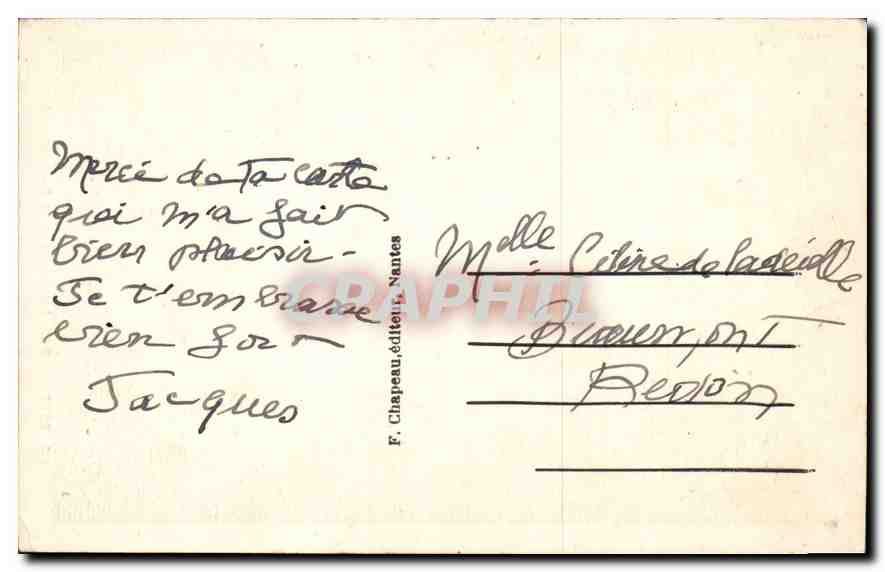 Merci de Ta carte
qui m'a fait
bien plaisir -
Je t'embrasse
bien fort
Jacques
F. Chapeau, éditeur, Nantes
Melle Céline de
Beaumont
CPARAMA